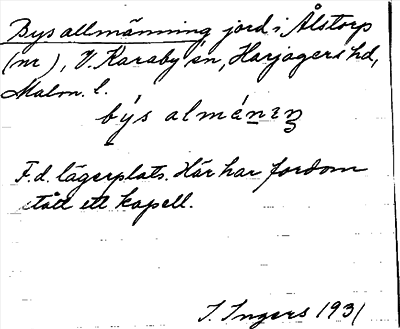 Bys allmänning jord i Ålstorp
(nr ), V. Karaby sn, Harjagers hd,
Malm. l.
býs alménıŋ
F.d. lägerplats. Här har fordom
stått ett kapell.
I. Ingers 1931